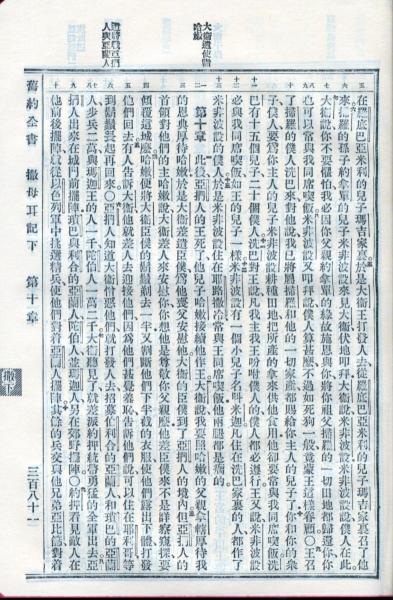 大衛遣使唁哈嫩
遣將攻亞捫人與亞蘭人
在羅底巴亞米利的兒子瑪吉家裏於是大衛王打發人去從羅底巴亞米利的兒子瑪吉家裏召了他
來掃羅的孫子約拿單的兒子米非波設見大衛伏地叩拜大衛說米非波設米非波設說僕人在此
大衛說你不要懼怕我必因你父親約拿單的緣故施恩與你將你祖父掃羅的一切田地都歸還你你
也可以常與我同席喫飯米非波設又叩拜說僕人算甚麼不過如死狗一般竟蒙王這樣眷顧○王召
了掃羅的僕人洗巴來對他說我已將屬掃羅和他的一切家產都賜給你主人的兒子了你和你的衆
子僕人要爲你主人的兒子米非波設耕種田地把所產的拿來供他食用他卻要常與我同席喫飯洗
巴有十五個兒子二十個僕人洗巴對王說凡我主我王吩咐僕人的僕人都必遵行王又說米非波設
必與我同席喫飯如王的兒子一樣米非波設有一個小兒子名叫米迦凡住在洗巴家裏的人都作了
米非波設的僕人於是米非波設住在耶路撒冷常與王同席喫飯他兩腿都是瘸的
第十章 此後亞捫人的王死了他兒子哈嫩接續他作王大衛說我要照哈嫩的父親拿轄厚待我
的恩典厚待哈嫩於是大衛差遣臣僕爲他喪父安慰他大衛的臣僕到了亞捫人的境內但亞捫人的
首領對他們的主哈嫩說大衛差人來安慰你你想他是尊敬你父親麼他差臣僕來不是詳察窺探要
傾覆這城麼哈嫩便將大衛臣僕的鬍鬚剃去一半又割斷他們下半截的衣服使他們露出下體打發
他們回去有人告訴大衛他就差人去迎接他們因爲他們甚覺羞恥告訴他們說可以住在耶利哥等
到鬍鬚長起再回來○亞捫人知道大衛憎惡他們就打發人去招募伯利合的亞蘭人和瑣巴的亞蘭
人步兵二萬與瑪迦王的人一千陀伯人一萬二千大衛聽見了就差派約押統帶勇猛的全軍出去亞
捫人出來在城門前擺陣瑣巴與利合的亞蘭人陀伯人並瑪迦人另在郊野擺陣○約押看見敵人在
他前後擺陣就從以色列軍中挑選精兵使他們對着亞蘭人擺陣其餘的兵交與他兄弟亞比篩對着
舊約全書 撒母耳記下 第十章 三百八十一
撒下